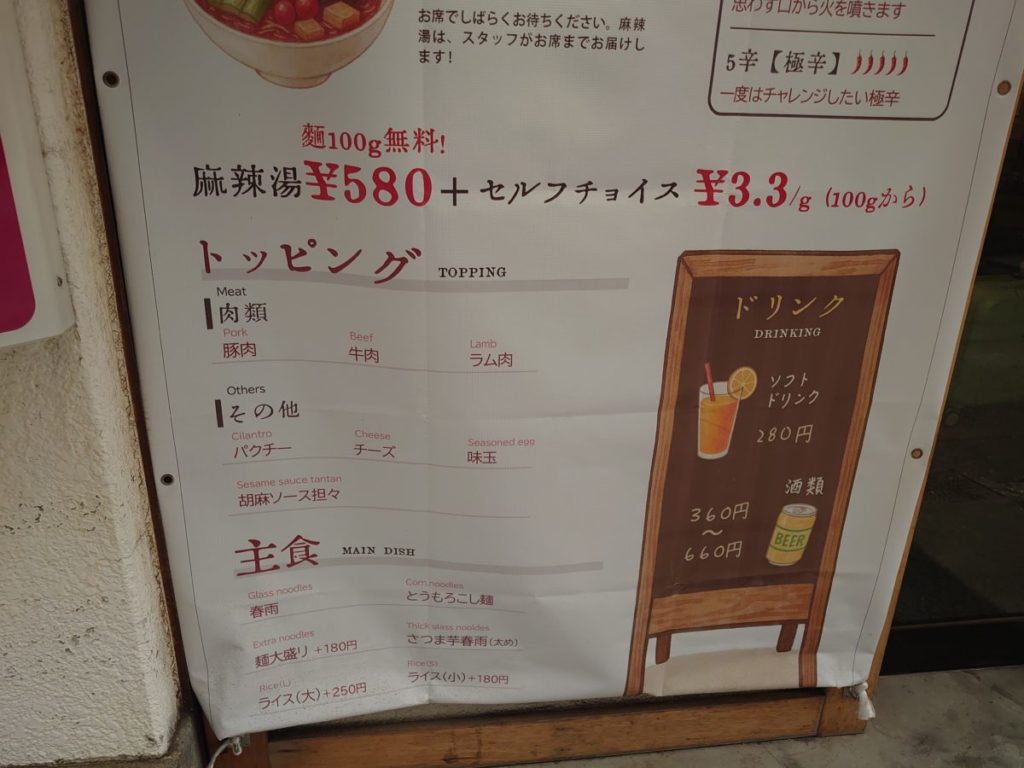 お席でしばらくお待ちください。麻辣
湯は、スタッフがお席までお届けし
ます!
思わず口から火を噴きます
5辛【極辛】
一度はチャレンジしたい極辛
麵100g無料!
麻辣湯¥580+セルフチョイス ¥3.3/g (100gから)
トッピング TOPPING
Meat
肉類
Pork
豚肉
Beef
牛肉
Lamb
ラム肉
Others
その他
Cilantro
パクチー
Cheese
チーズ
Seasoned egg
味玉
Sesame sauce tantan
胡麻ソース担々
主食 MAIN DISH
Glass noodles
春雨
Corn noodles
とうもろこし麺
Extra noodles
麺大盛り +180円
Thick glass nooldes
さつま芋春雨(太め)
Rice(L)
ライス(大)+250円
Rice(S)
ライス(小)+180円
ドリンク
DRINKING
ソフト
ドリンク
280円
酒類
360円
~
660円
BEER